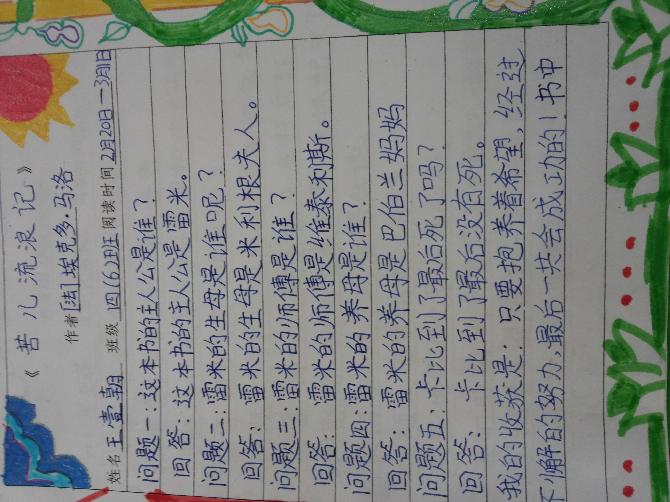 《苦儿流浪记》
作者[法]埃克多·马洛
姓名王壹朝 班级四(6)班 阅读时间2月20日—3月1日
问题一:这本书的主人公是谁?
回答:这本书的主人公是雷米。
问题二:雷米的生母是谁呢?
回答:雷米的生母是米利根夫人。
问题三:雷米的师傅是谁?
回答:雷米的师傅是维泰利斯。
问题四:雷米的养母是谁?
回答:雷米的养母是巴伯兰妈妈
问题五:卡比到了最后死了吗?
回答:卡比到了最后没有死。
我的收获是:只要抱养着希望,经过
不懈的努力,最后一共会成功的!书中